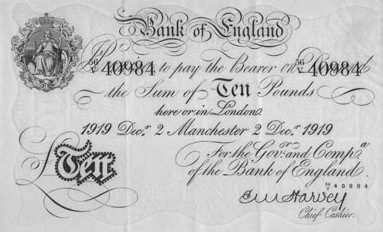 Bank of England
56/V 40984 I Promise to pay the Bearer on Demand 56/V 40984
the Sum of Ten Pounds
here or in London.
1919 Decr. 2 Manchester 2 Decr. 1919
For the Govr. and Compa.
of the Bank of England.
40984
Ten
E M Harvey
Chief Cashier.